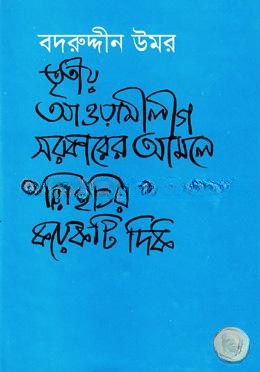 বদরুদ্দীন উমর
তৃতীয়
আওয়ামীলীগ
সরকারের আমলে
পরিস্থিতির
কয়েকটি দিক